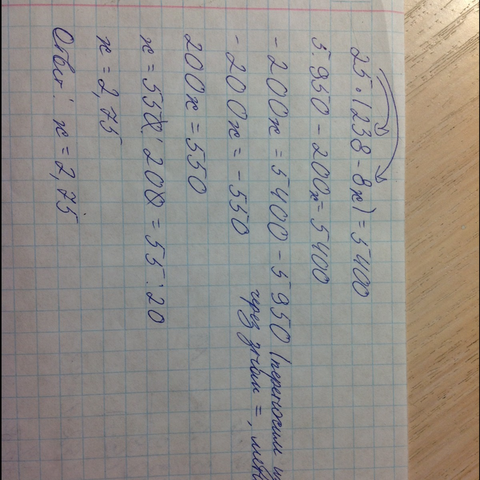 25·(238 - 8x) = 5400
5.950 - 200x = 5400
- 200x = 5400 - 5950 (переносим
через знак =,
- 200x = -550
200x = 550
x = 550 : 200 = 55 : 20
x = 2,75
Ответ: x = 2,75